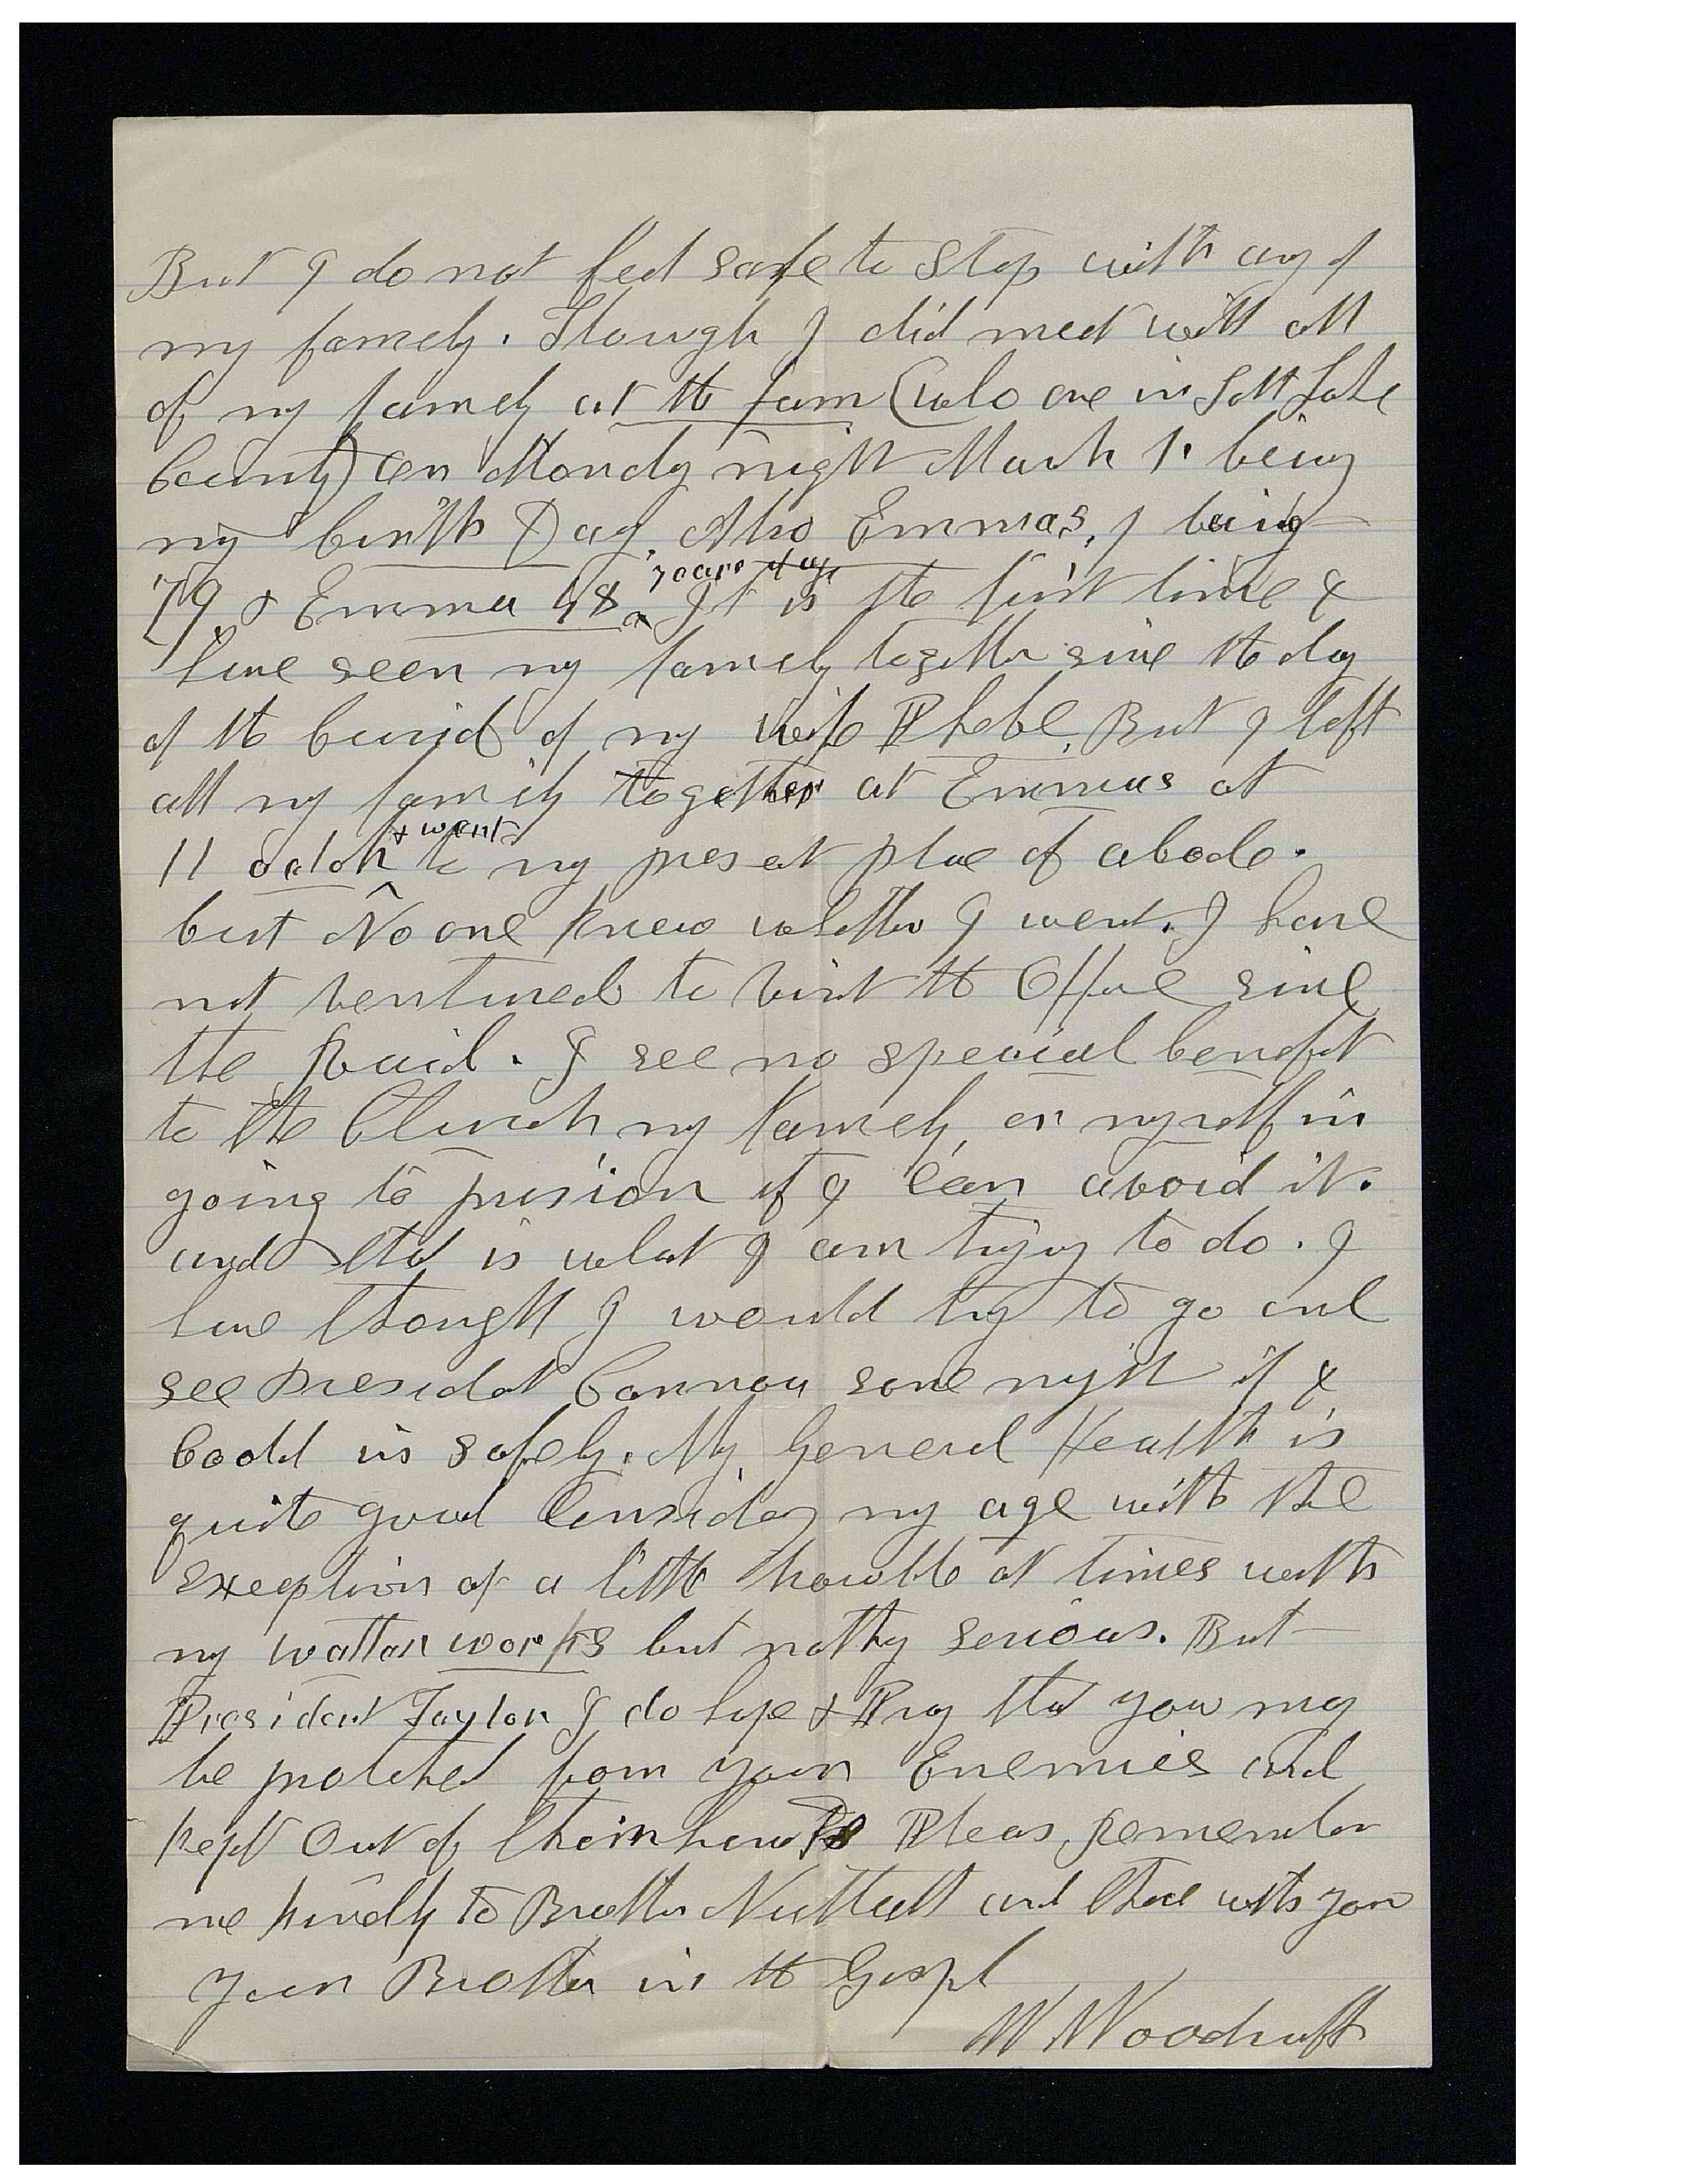 But I do not feel safe to Stop with any of
my famely. Though I did meet with all
of my famely at the farm (who are in Salt Lake
County) on Monday night March 1. being
my birth Day. Also Emmas, I being
79 & Emma 48 years of age. It is the first time I
have seen my famely together since the day
of the burial of my wife Phebe, But I left
all my family together at Emmas at
11 oclok & went to my present place of abode.
but No one knew whether I went. I have
not ventured to visit the Office since
the Raid. I see no special benefit
to the Church my Famely, or myself in
going to prision if I can avoid it.
and that is what I am trying to do. I
have thought I would try to go and
see President Cannon some night if I
Could in safely. My General Health is
quite good Considering my age with the
exception of a little trouble at times with
my watter works but nothing serious. But
President Taylor I do hope & Pray that you may
be protected from your Enemies and
kept Out of their hands Pleas, Remember
me kindly to Brother Nuttall and those with you
Your Brother in the Gospel
W Woodruff